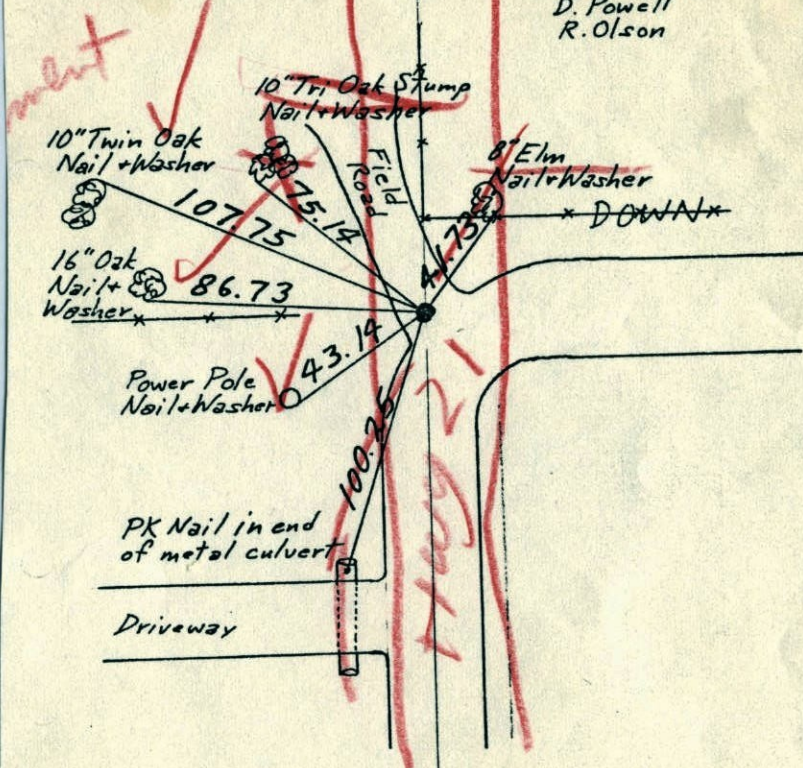 D. Powell
R. Olson
ment
10" Tri Oak Stump
Nail+Washer
10" Twin Oak
Nail +Washer
8" Elm
Nail+Washer
Field
Road
75.14
107.75
DOWN
16" Oak
Nail+
Washer
86.73
43.14
Power Pole
Nail+Washer
Hwy 21
100.25
PK Nail in end
of metal culvert
Driveway